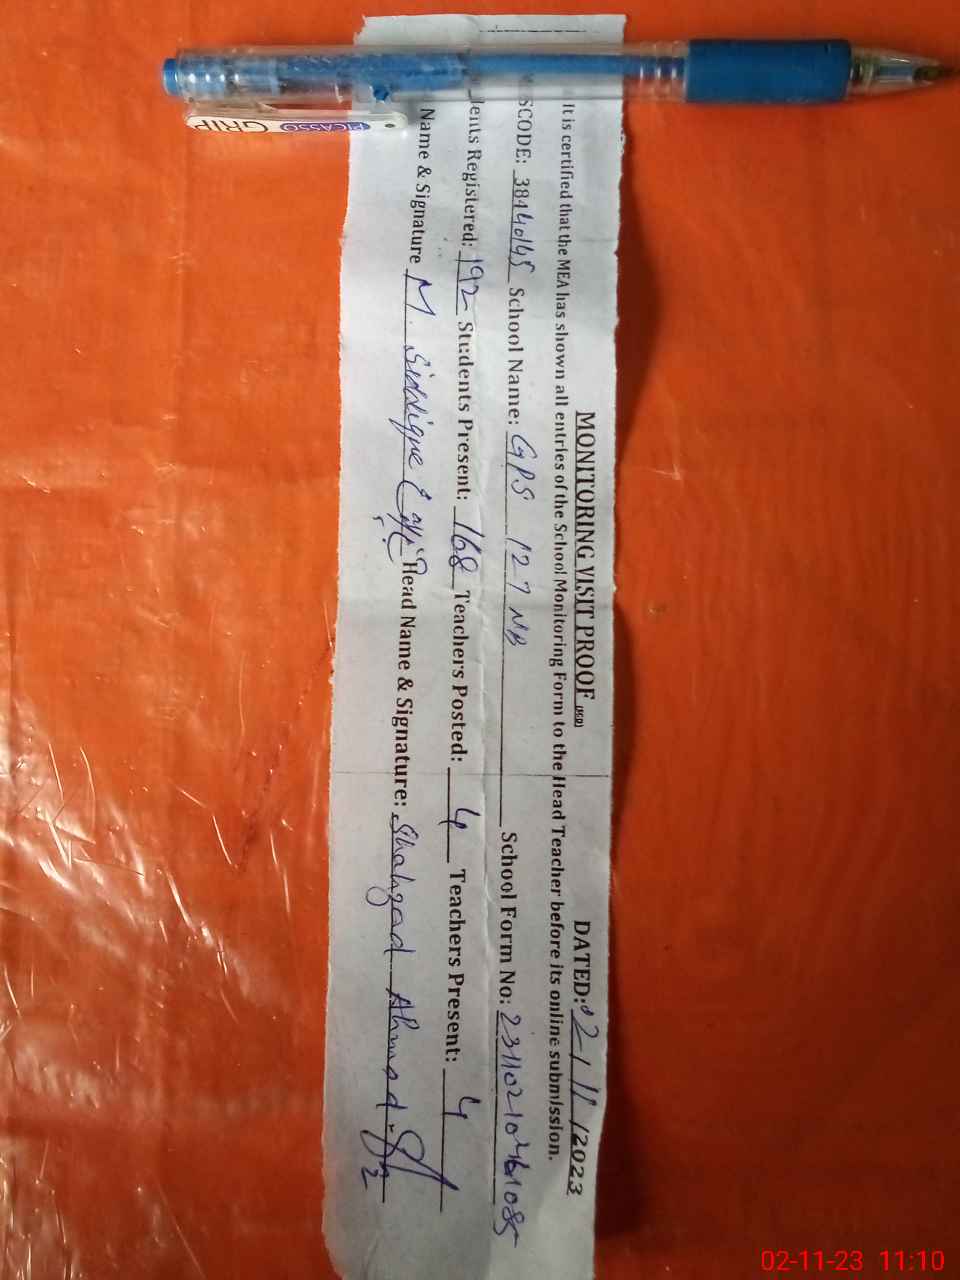 MONITORING VISIT PROOF (PSP) DATED: 02/11/2023
It is certified that the MEA has shown all entries of the School Monitoring Form to the Head Teacher before its online submission.
SCODE: 38440145 School Name: GPS 127 NB School Form No:
dents Registered: 192 Students Present: 168 Teachers Posted: 4 Teachers Present: 4
Name & Signature M. Siddique Head Name & Signature: Shahzad Ahmad
PICASSO GRIP
02-11-23 11:10